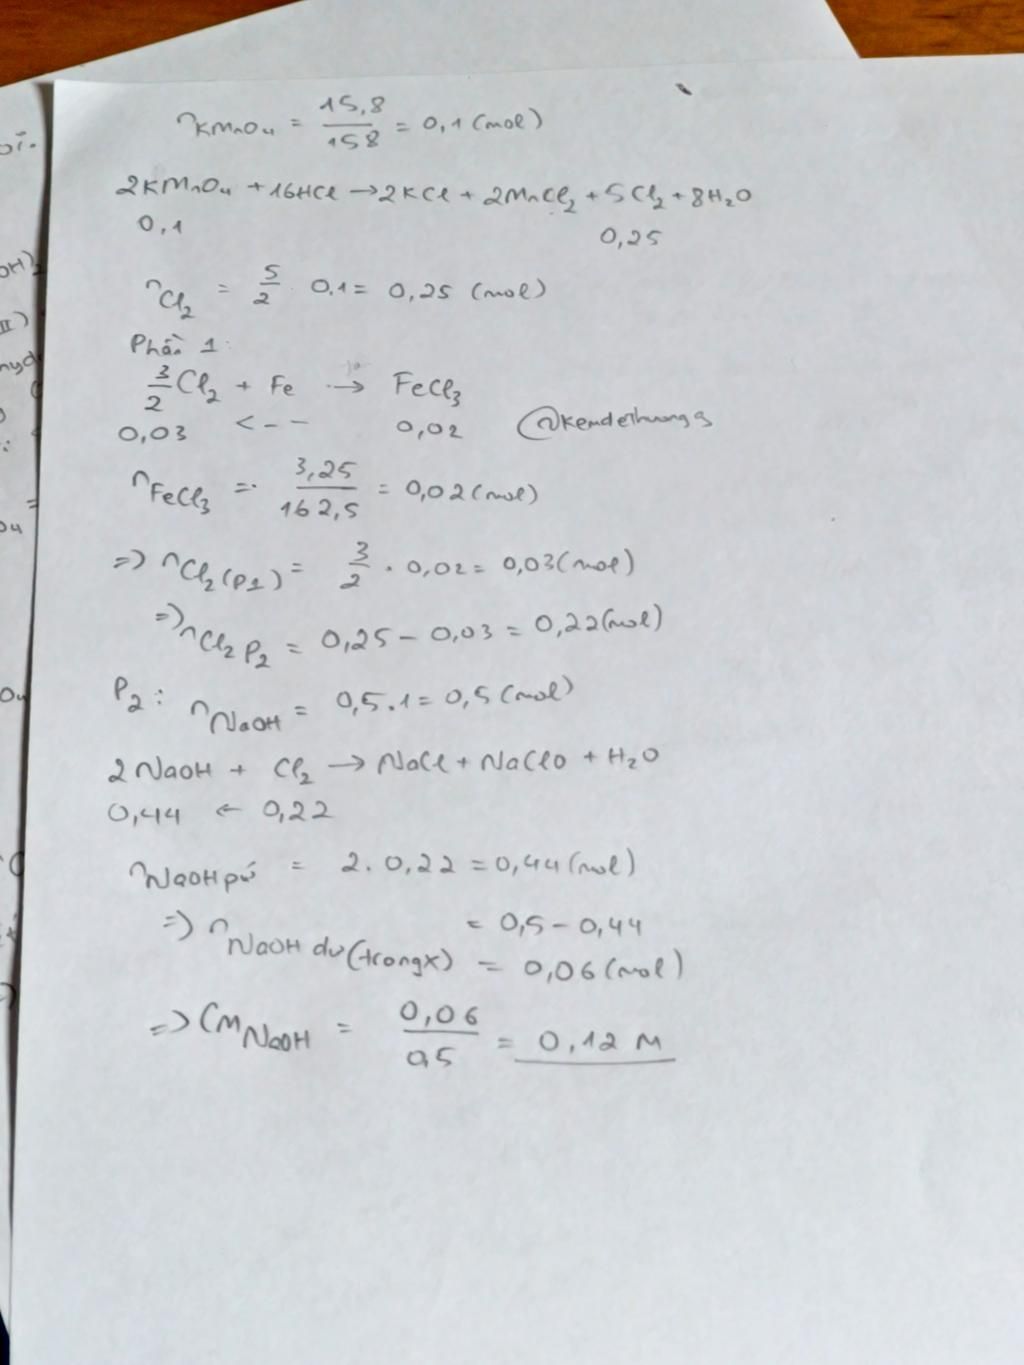 nKMnO4 = 15,8/158 = 0,1 (mol)
2KMnO4 + 16HCl → 2KCl + 2MnCl2 + 5Cl2 + 8H2O
0,1 0,25
nCl2 = 5/2 . 0,1 = 0,25 (mol)
Phần 1:
3/2 Cl2 + Fe → FeCl3
0,03 <-- 0,02 @kemdethuong3
nFeCl3 = 3,25/162,5 = 0,02 (mol)
=> nCl2(P1) = 3/2 . 0,02 = 0,03 (mol)
=> nCl2 P2 = 0,25 - 0,03 = 0,22 (mol)
P2: nNaOH = 0,5.1 = 0,5 (mol)
2NaOH + Cl2 → NaCl + NaClO + H2O
0,44 ← 0,22
nNaOH pứ = 2. 0,22 = 0,44 (mol)
=> nNaOH dư (trong X) = 0,5 - 0,44
= 0,06 (mol)
=> CM NaOH = 0,06/0,5 = 0,12 M